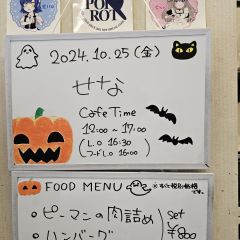 POP
ROT
2024.10.25(金)
せな
Cafe Time
12:00~17:00
(L.O 16:30
フードL.O 16:30)
FOOD MENU
※すべて税込価格です。
・ピーマンの肉詰め
・ハンバーグ
Set
¥800